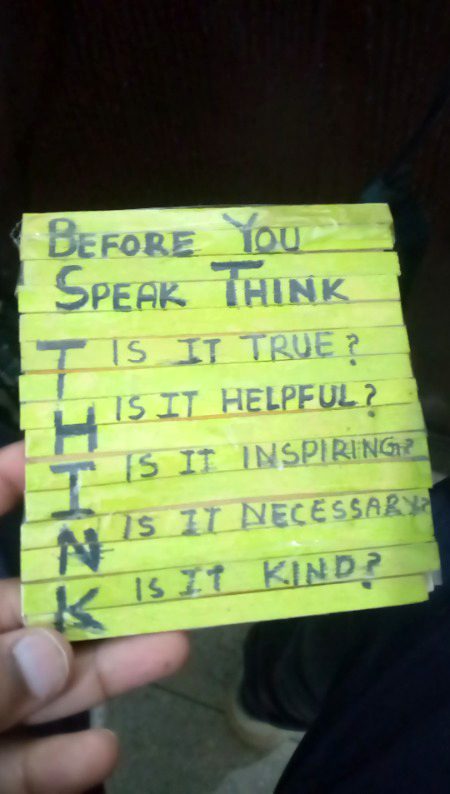 BEFORE YOU
SPEAK THINK
T IS IT TRUE?
H IS IT HELPFUL?
I IS IT INSPIRING?
N IS IT NECESSARY?
K IS IT KIND?